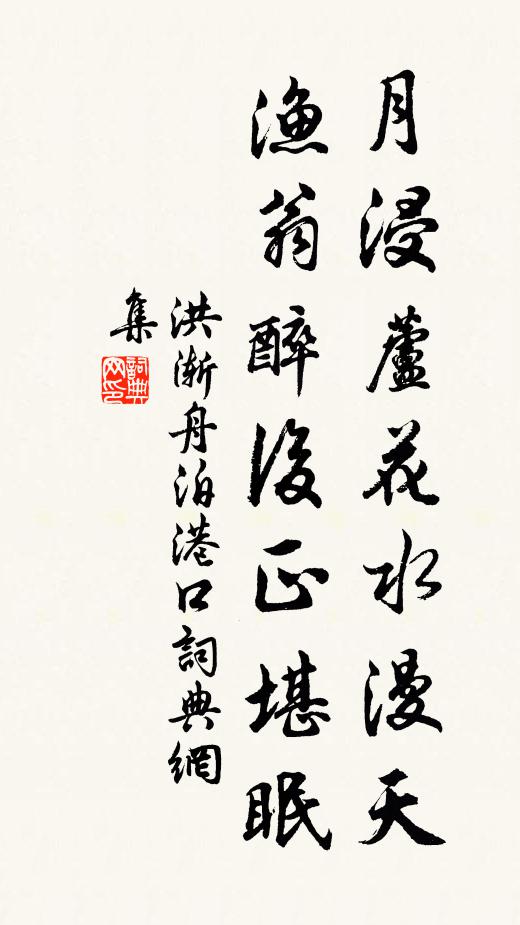 月浸蘆花水漫天
漁翁醉後正堪眠
洪漸舟泊港口詞典網
集
詞典網印